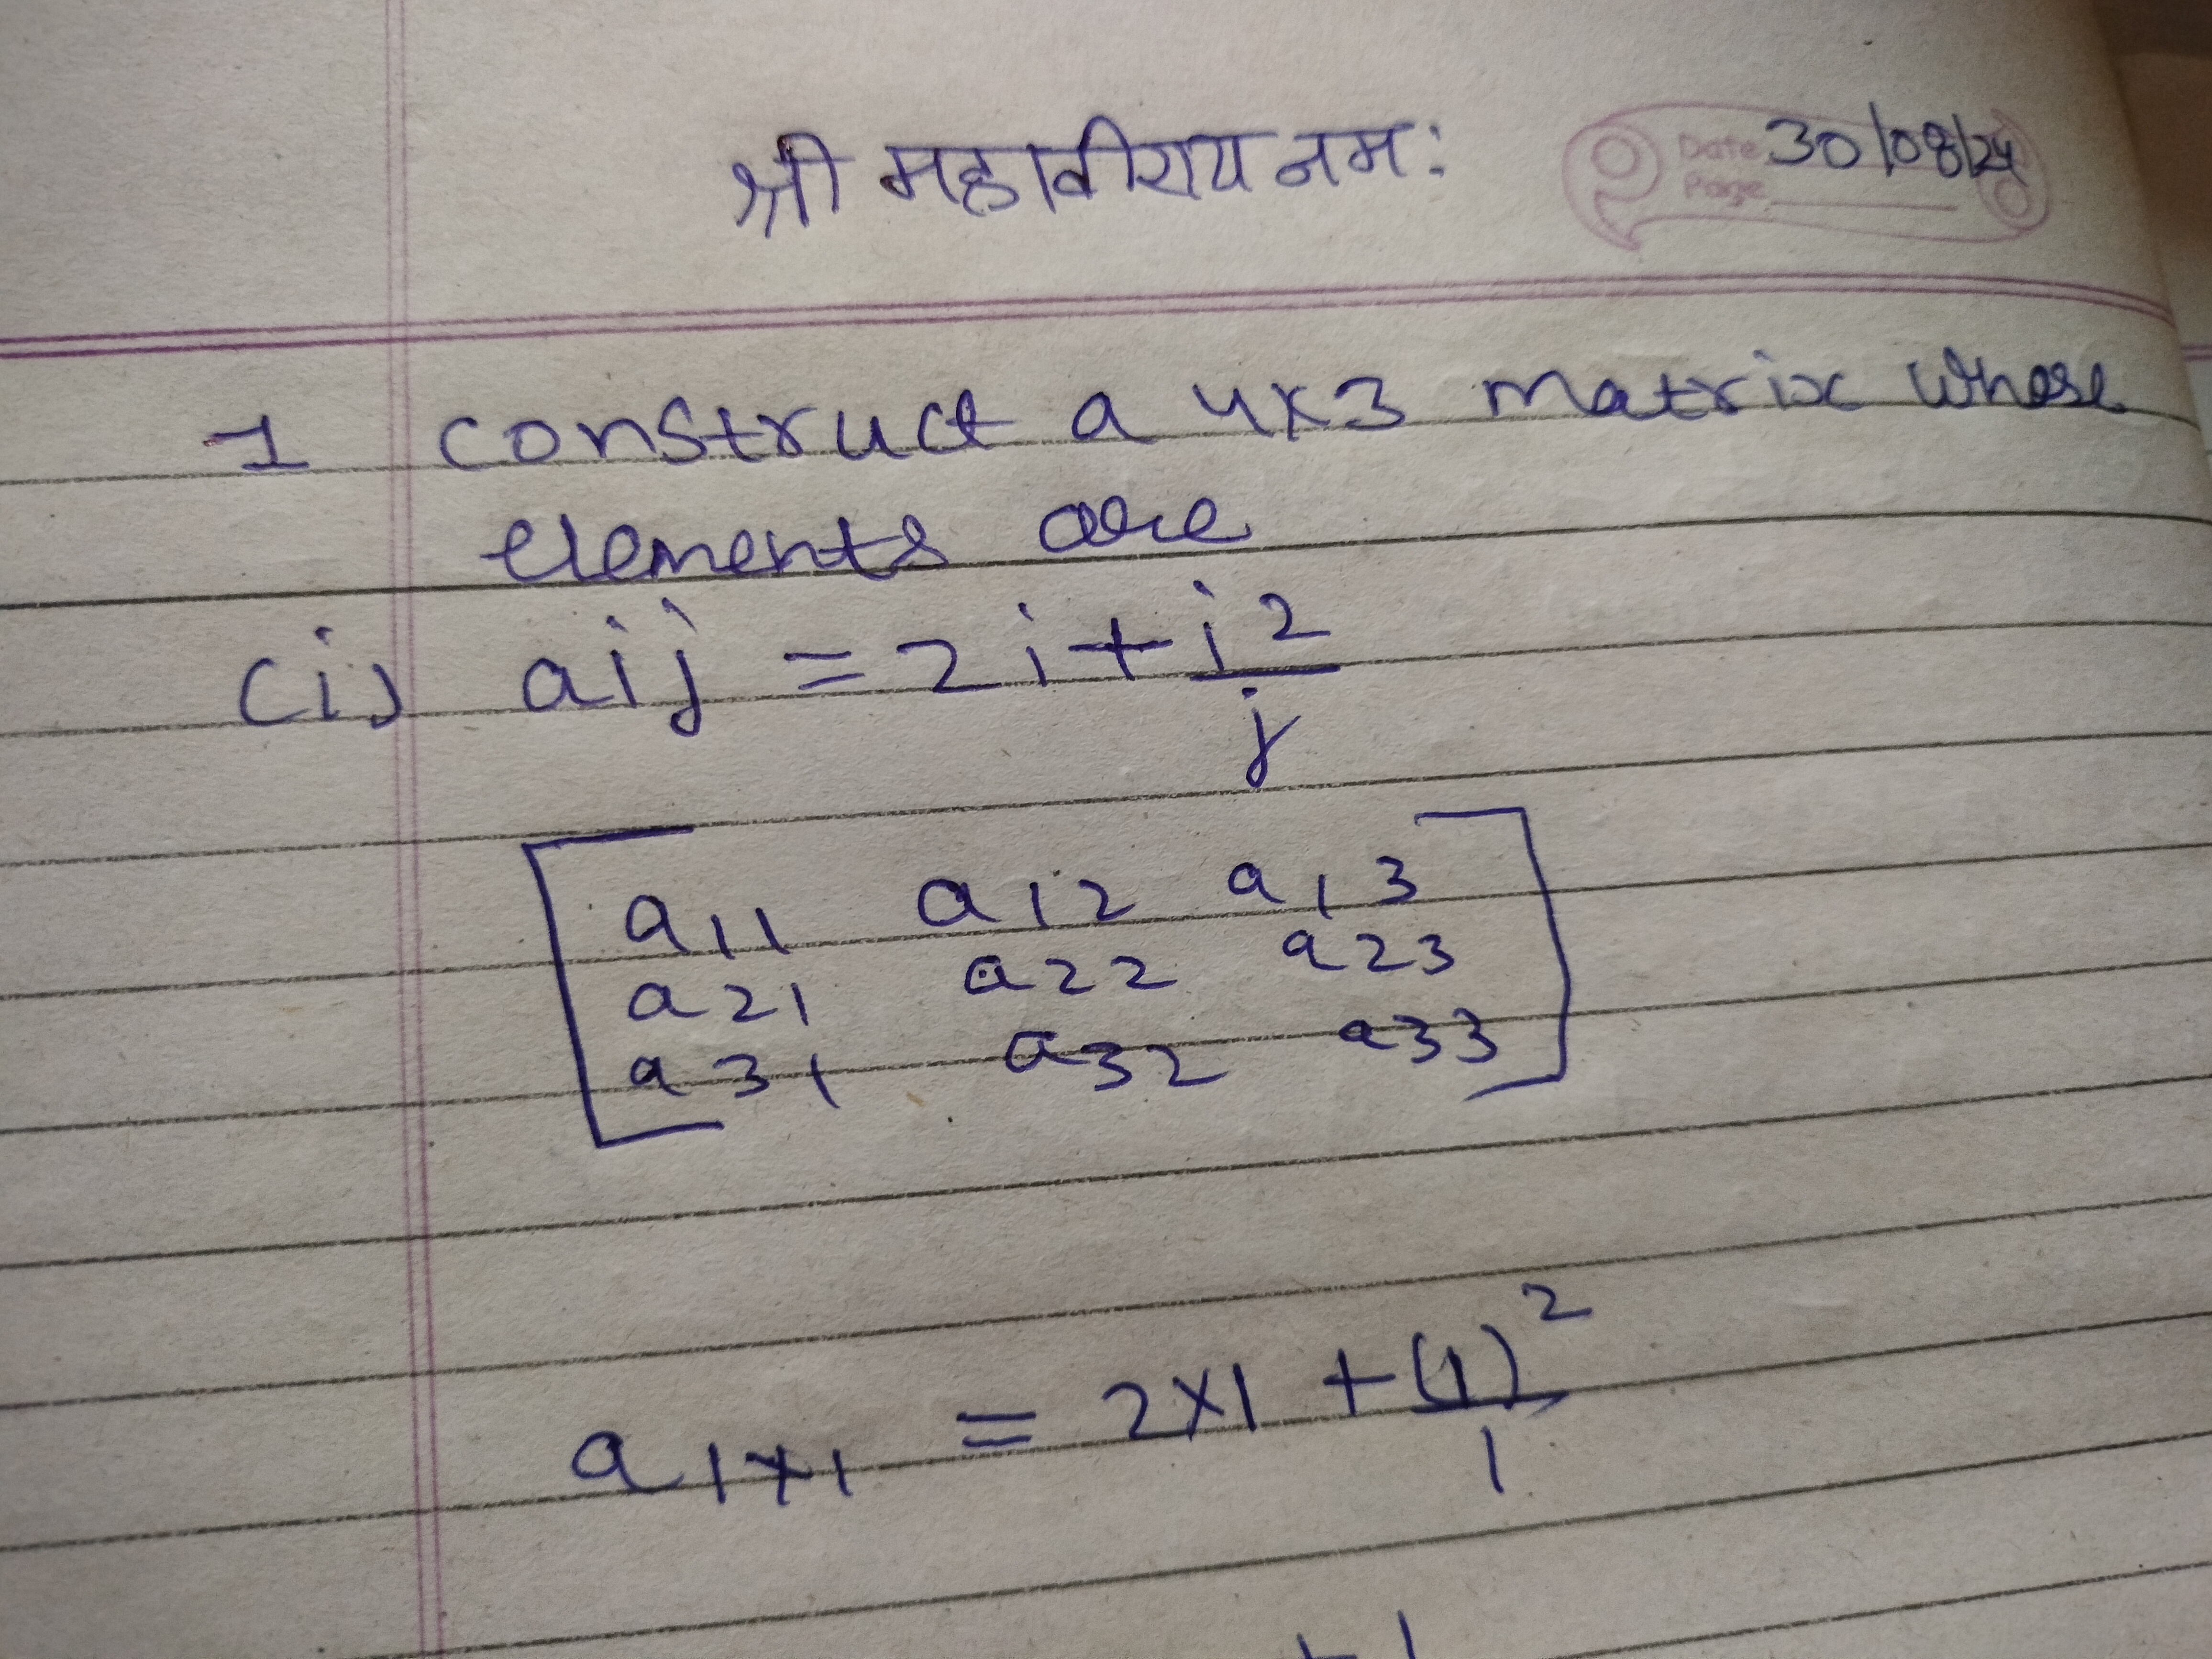 श्री महावीराय नमः
Date 30/08/24
Page
1 construct a 4x3 matrix whose
elements are
(i) aij = 2i + i²/j
a11 a12 a13
a21 a22 a23
a31 a32 a33
a1x1 = 2x1 + (1)²/1